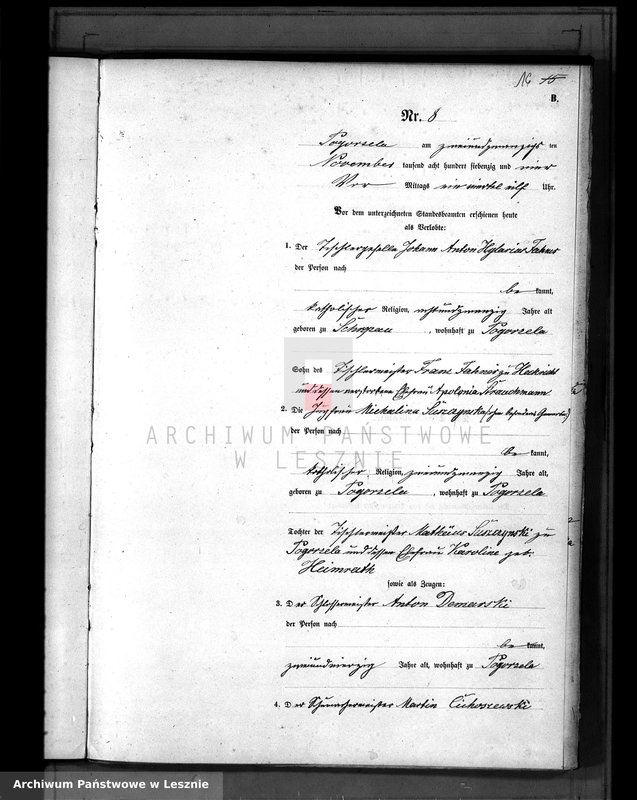 16 15
B.
Nr. 8
Pogorzela am zweiundzwanzigs ten
November tausend acht hundert siebenzig und vier
Vor Mittags ein viertel elf Uhr.
Vor dem unterzeichneten Standesbeamten erschienen heute
als Verlobte:
1. Der Tischlergeselle Johann Anton Hylarius
der Person nach
be kannt,
katholischer Religion, achtundzwanzig Jahre alt
geboren zu , wohnhaft zu Pogorzela
Sohn des Tischlermeister Franz zu
und dessen verstorbene Ehefrau Apolonia Strauchmann
2. Die Jungfrau Michalina Suszynska (ohne besonderes Gewerbe)
der Person nach
be kannt,
katholischer Religion, zweiundzwanzig Jahre alt,
geboren zu Pogorzela , wohnhaft zu Pogorzela
Tochter der Tischlermeister Mathäus Suszynski zu
Pogorzela und dessen Ehefrau Karoline geb.
Heimrath
sowie als Zeugen:
3. Der Schlossermeister Anton Demarski
der Person nach
be kannt,
zweiundvierzig Jahre alt, wohnhaft zu Pogorzela
4. Der Schumachermeister Martin Cichoszewski
ARCHIWUM PAŃSTWOWE
W LESZNIE
Archiwum Państwowe w Lesznie